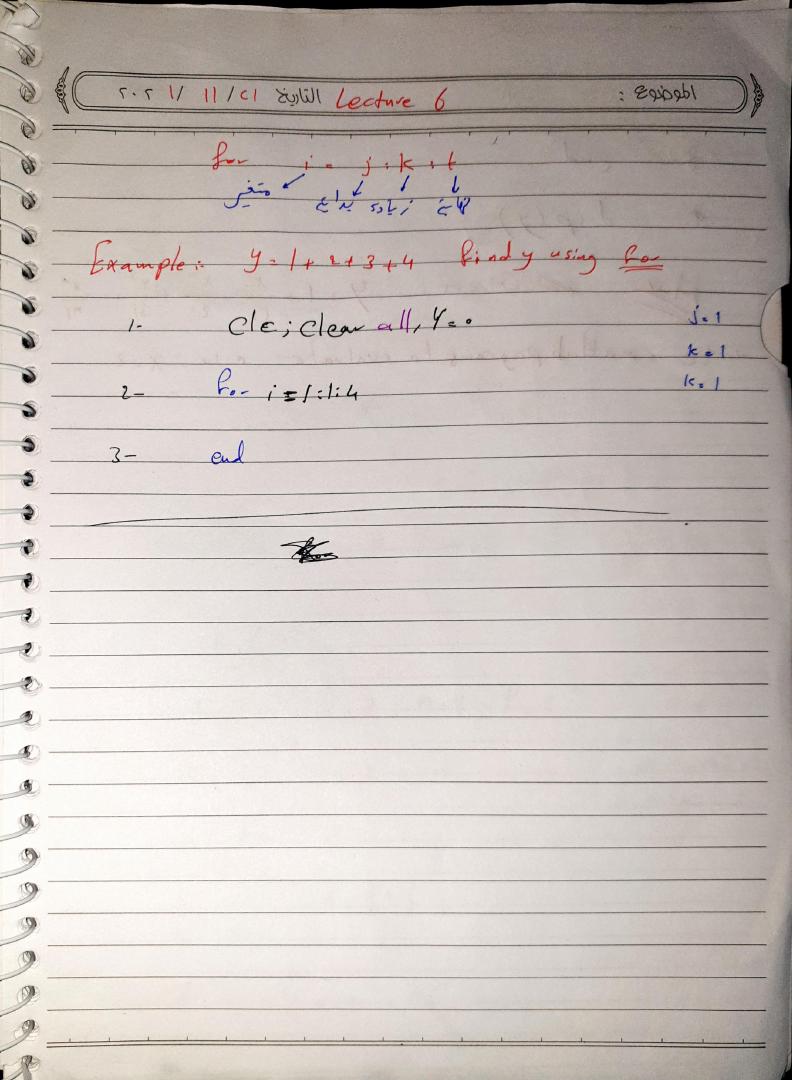 الموضوع : Lecture 6 التاريخ ٢١/ ١١ /٢٠٢١
for i = j : k : t
متغير بداية زيادة نهاية
Example :- y = 1 + 2 + 3 + 4 find y using for
1- clc ; clear all, Y = 0 j = 1
k = 1
2- for i = 1:1:4 k = 1
3- end